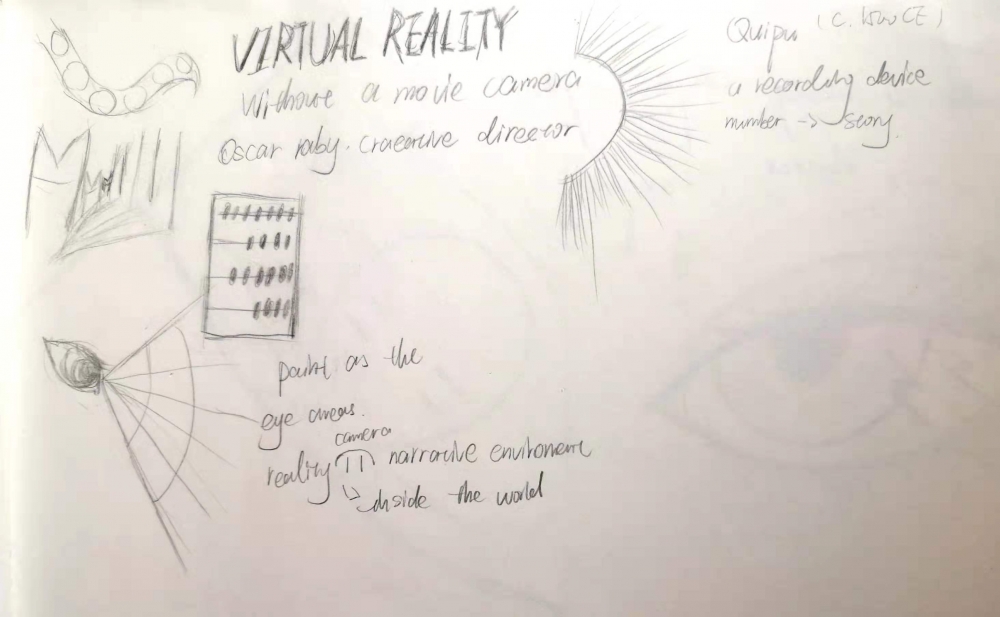 VIRTUAL REALITY
without a movie camera
Oscar raby. craeorive director
Quipu (C. 1500 CE)
a recording device
number -> story.
paint as the
eye areas.
camera
reality narrative environment
inside the world